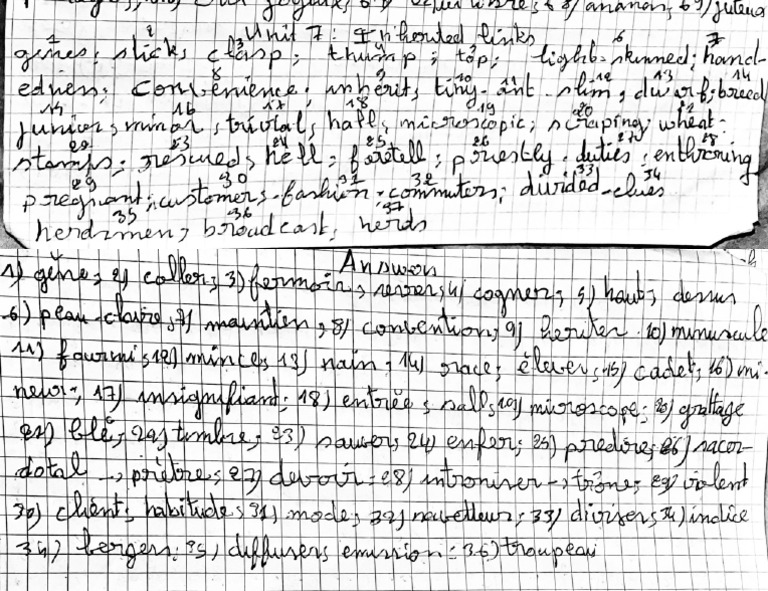 Unit 7: Inherited links
genes; sticks clasp; thump; top; light-skinned; hand-
edness; convenience; inherit, tiny-ant-slim, dwarf; breed
junior, minor, trivial, hall, microscopic; scraping wheat.
stamps; rescued, hell; foretell; priestly-duties; enthroning
pregnant; customers-fashion-commuters; divided-clues
herdsmen, broadcast, herds
Answer
1) gêne; 2) coller; 3) fermoir, serrer; 4) cogner; 5) haut; dessus
6) peau-claire; 7) maintien; 8) convention; 9) heriter. 10) minuscule
11) fourmi; 12) mince; 13) nain; 14) race; élever; 15) cadet; 16) mi-
neur; 17) insignifiant; 18) entrée; salle; 19) microscope; 20) grattage
21) blé; 22) timbre; 23) sauver; 24) enfer; 25) predire; 26) sacer-
dotal → prêtre; 27) devoir; 28) introniser → trône; 29) violent
30) client; habitude; 31) mode; 32) navetteur; 33) diviser; 34) indice
34) berger; 35) diffuser; emission; 36) troupeau